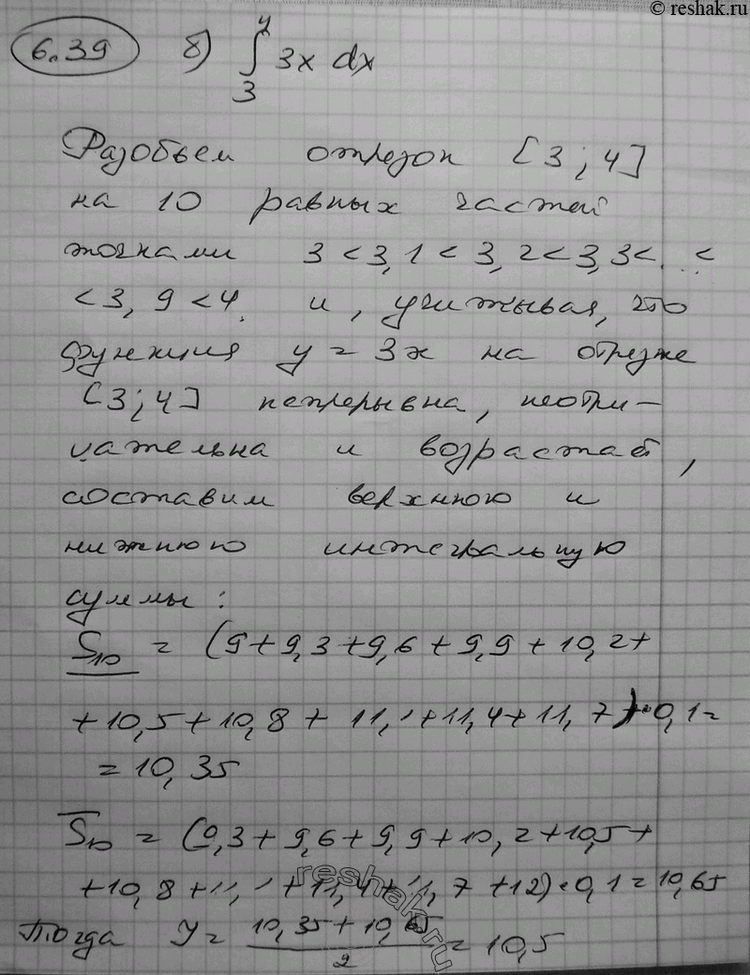 © reshak.ru
6.39 б) ∫₃⁴ 3x dx
Разобьем отрезок [3; 4]
на 10 равных частей
точками 3 < 3,1 < 3,2 < 3,3 < ... <
< 3,9 < 4, и, учитывая, что
функция y = 3x на отрезке
[3; 4] непрерывна, неотри-
цательна и возрастает,
составим верхнюю и
нижнюю интегральную
суммы:
S₁₀ = (9 + 9,3 + 9,6 + 9,9 + 10,2 +
+ 10,5 + 10,8 + 11,1 + 11,4 + 11,7) · 0,1 =
= 10,35
S₁₀ = (9,3 + 9,6 + 9,9 + 10,2 + 10,5 +
+ 10,8 + 11,1 + 11,4 + 11,7 + 12) · 0,1 = 10,65
Тогда Y = (10,35 + 10,65) / 2 = 10,5
reshak.ru